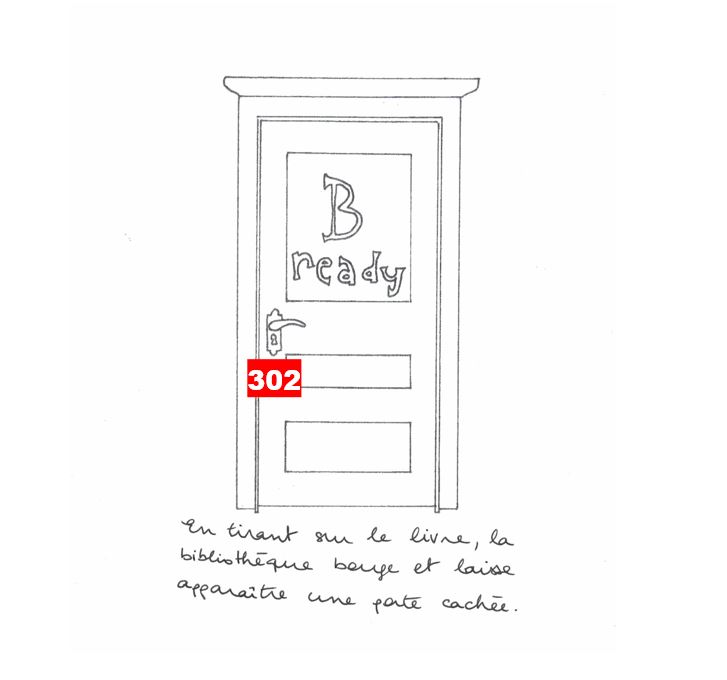 B
ready
302
En tirant sur le livre, la
bibliothèque bouge et laisse
apparaître une porte cachée.